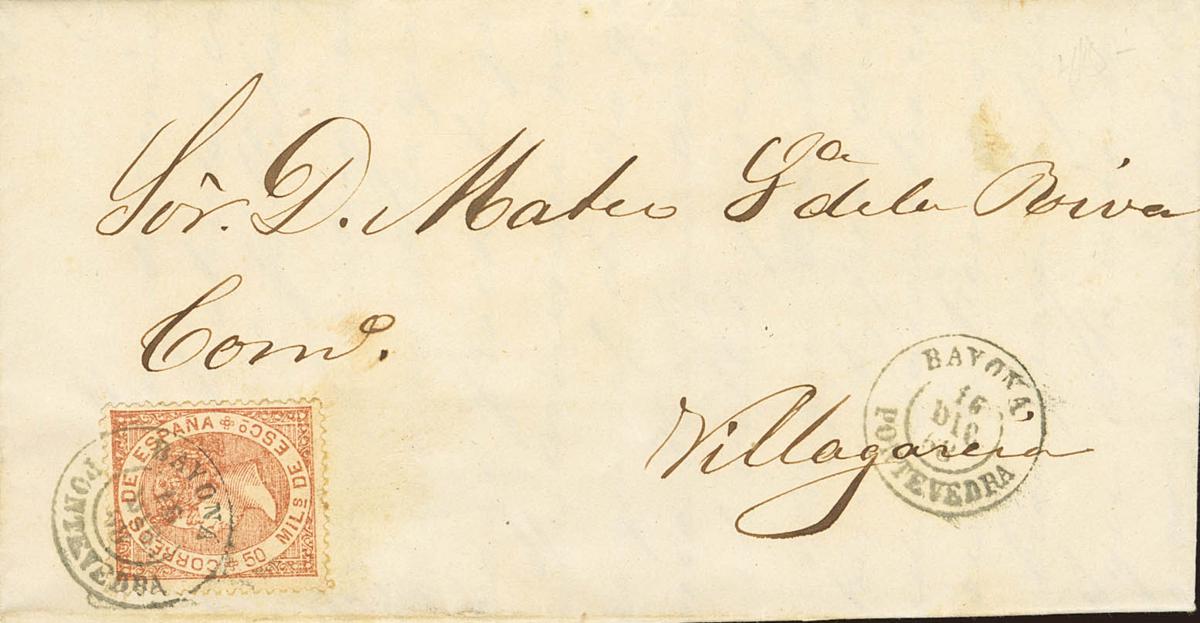 Sor. D. Mateo Ga de la Riva
Como.
Villagarcia
BAYONA
16
DIC
PONTEVEDRA
CORREOS DE ESPAÑA
50 MILS DE ESCO
BAYONA
16
PONTEVEDRA